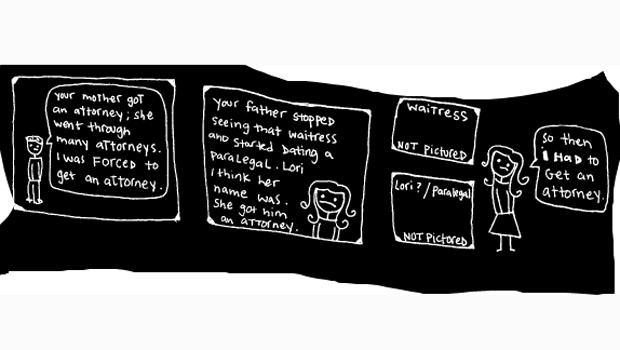 your mother got
an attorney; she
went through
many attorneys.
I was FORCED to
get an attorney.
your father stopped
seeing that waitress
and started dating a
paralegal. Lori
I think her
name was.
she got him
an attorney.
waitress
NOT PICTURED
Lori ? / paralegal
NOT PICTURED
so then
I HAD to
Get an
attorney.